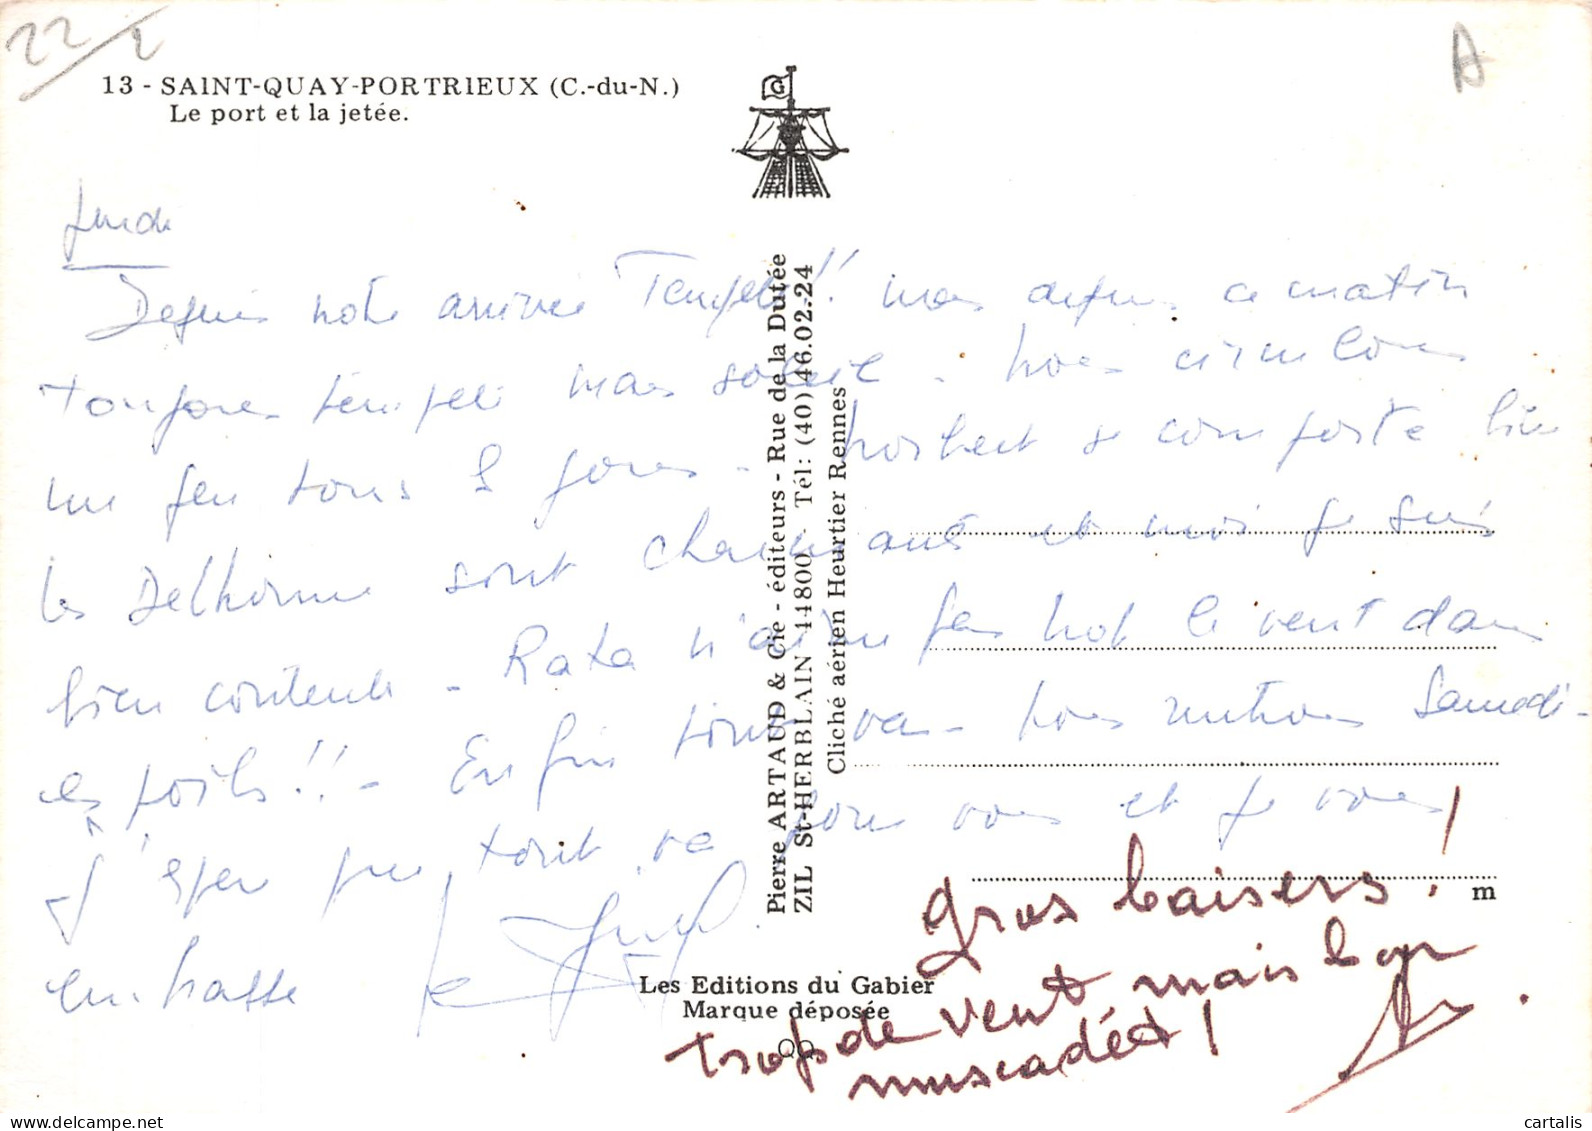 22/2
A
13 - SAINT-QUAY-PORTRIEUX (C.-du-N.)
Le port et la jetée.
G
Jeudi
Depuis notre arrivée Tempête!! mais depuis ce matin
toujours tempête mais soleil. nous circulons
un peu tous les jours - Norbert se comporte bien
les Delhomme sont charmants et moi je suis
bien contente - Rata n'aime pas trop le vent dans
ses poils!! - Enfin tout va - nous rentrons Samedi -
J'espère que tout va pour vous et je vous
embrasse
Pierre ARTAUD & Cie - éditeurs - Rue de la Dutée
ZIL St-HERBLAIN 44800 Tél: (40) 46.02.24
Cliché aérien Heurtier Rennes
Gros baisers!
trop de vent mais bon
muscadet!
m
Les Editions du Gabier
Marque déposée
QQ
cartalis